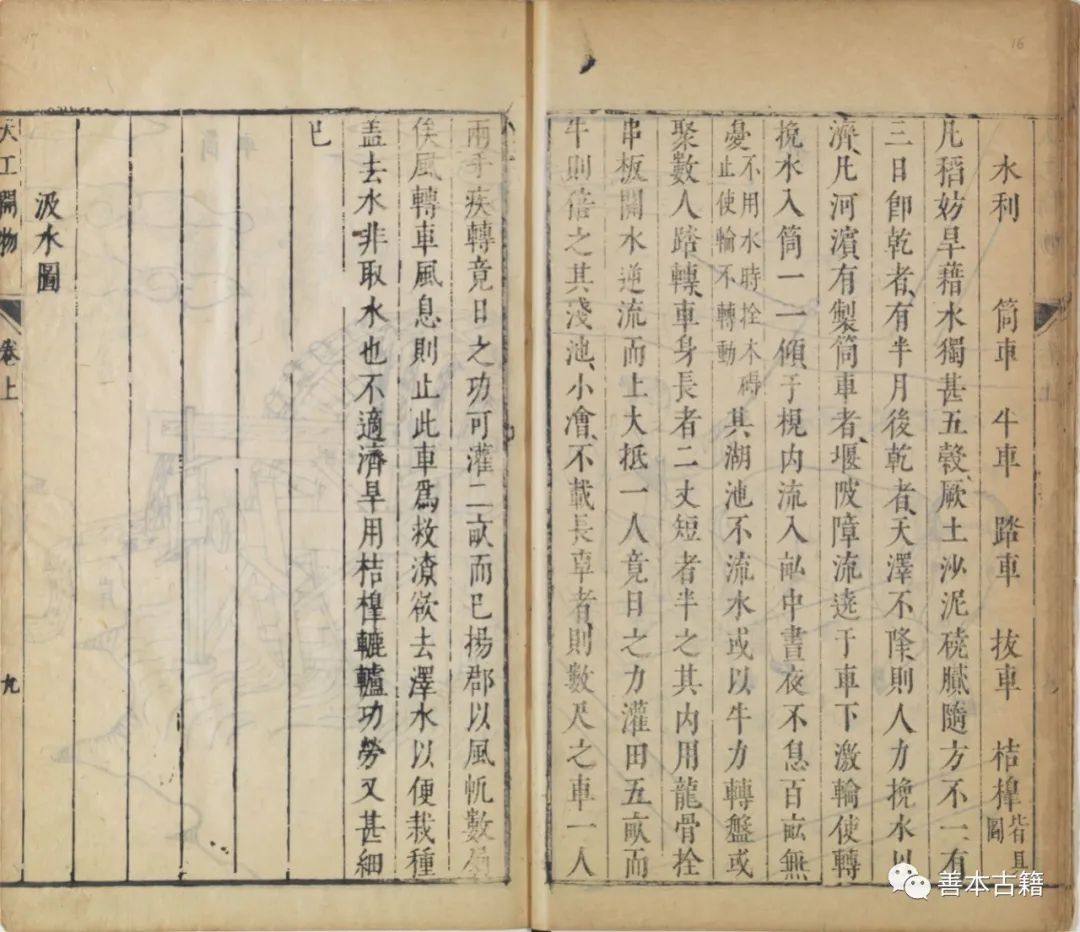 水利 筒車 牛車 踏車 拔車 桔槹皆具圖
凡稻妨旱藉水獨甚五穀厥土沙泥磽膩隨方不一有
三日卽乾者有半月後乾者天澤不降則人力挽水以
濟凡河濱有製筒車者堰陂障流遶于車下激輪使轉
挽水入筒一一傾于梘內流入畝中晝夜不息百畝無
憂不用水時拴木礙止使輪不轉動其湖池不流水或以牛力轉盤或
聚數人踏轉車身長者二丈短者半之其內用龍骨拴
串板關水逆流而上大抵一人竟日之力灌田五畝而
牛則倍之其淺池小澮不載長車者則數尺之車一人
兩手疾轉竟日之功可灌二畝而已揚郡以風帆數扇
俟風轉車風息則止此車爲救潦欲去澤水以便栽種
盖去水非取水也不適濟旱用桔槹轆轤功勞又甚細
已
汲水圖
天工開物 卷上 九
16
善本古籍